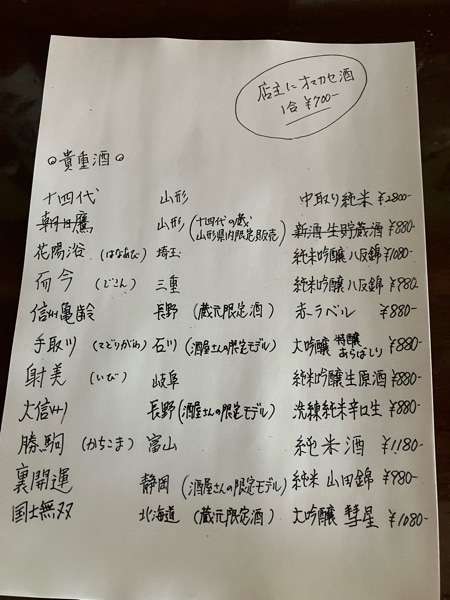 店主にオマカセ酒
1合 ¥700-
○貴重酒○
十四代 山形 中取り純米 ¥2800-
朝日鷹 山形 (十四代の蔵 山形県内限定販売) 新酒 生貯蔵酒 ¥880-
花陽浴 (はなあび) 埼玉 純米吟醸 八反錦 ¥1080-
而今 (じこん) 三重 純米吟醸 八反錦 ¥980-
信州亀齢 長野 (蔵元限定酒) 赤ラベル ¥880-
手取川 (てどりがわ) 石川 (酒屋さんの限定モデル) 大吟醸 特醸あらばしり ¥880-
射美 (いび) 岐阜 純米吟醸生原酒 ¥880-
大信州 長野 (酒屋さんの限定モデル) 洗練純米辛口生 ¥880-
勝駒 (かちこま) 富山 純米酒 ¥1180-
裏開運 静岡 (酒屋さんの限定モデル) 純米 山田錦 ¥980-
国士無双 北海道 (蔵元限定酒) 大吟醸 彗星 ¥1080-